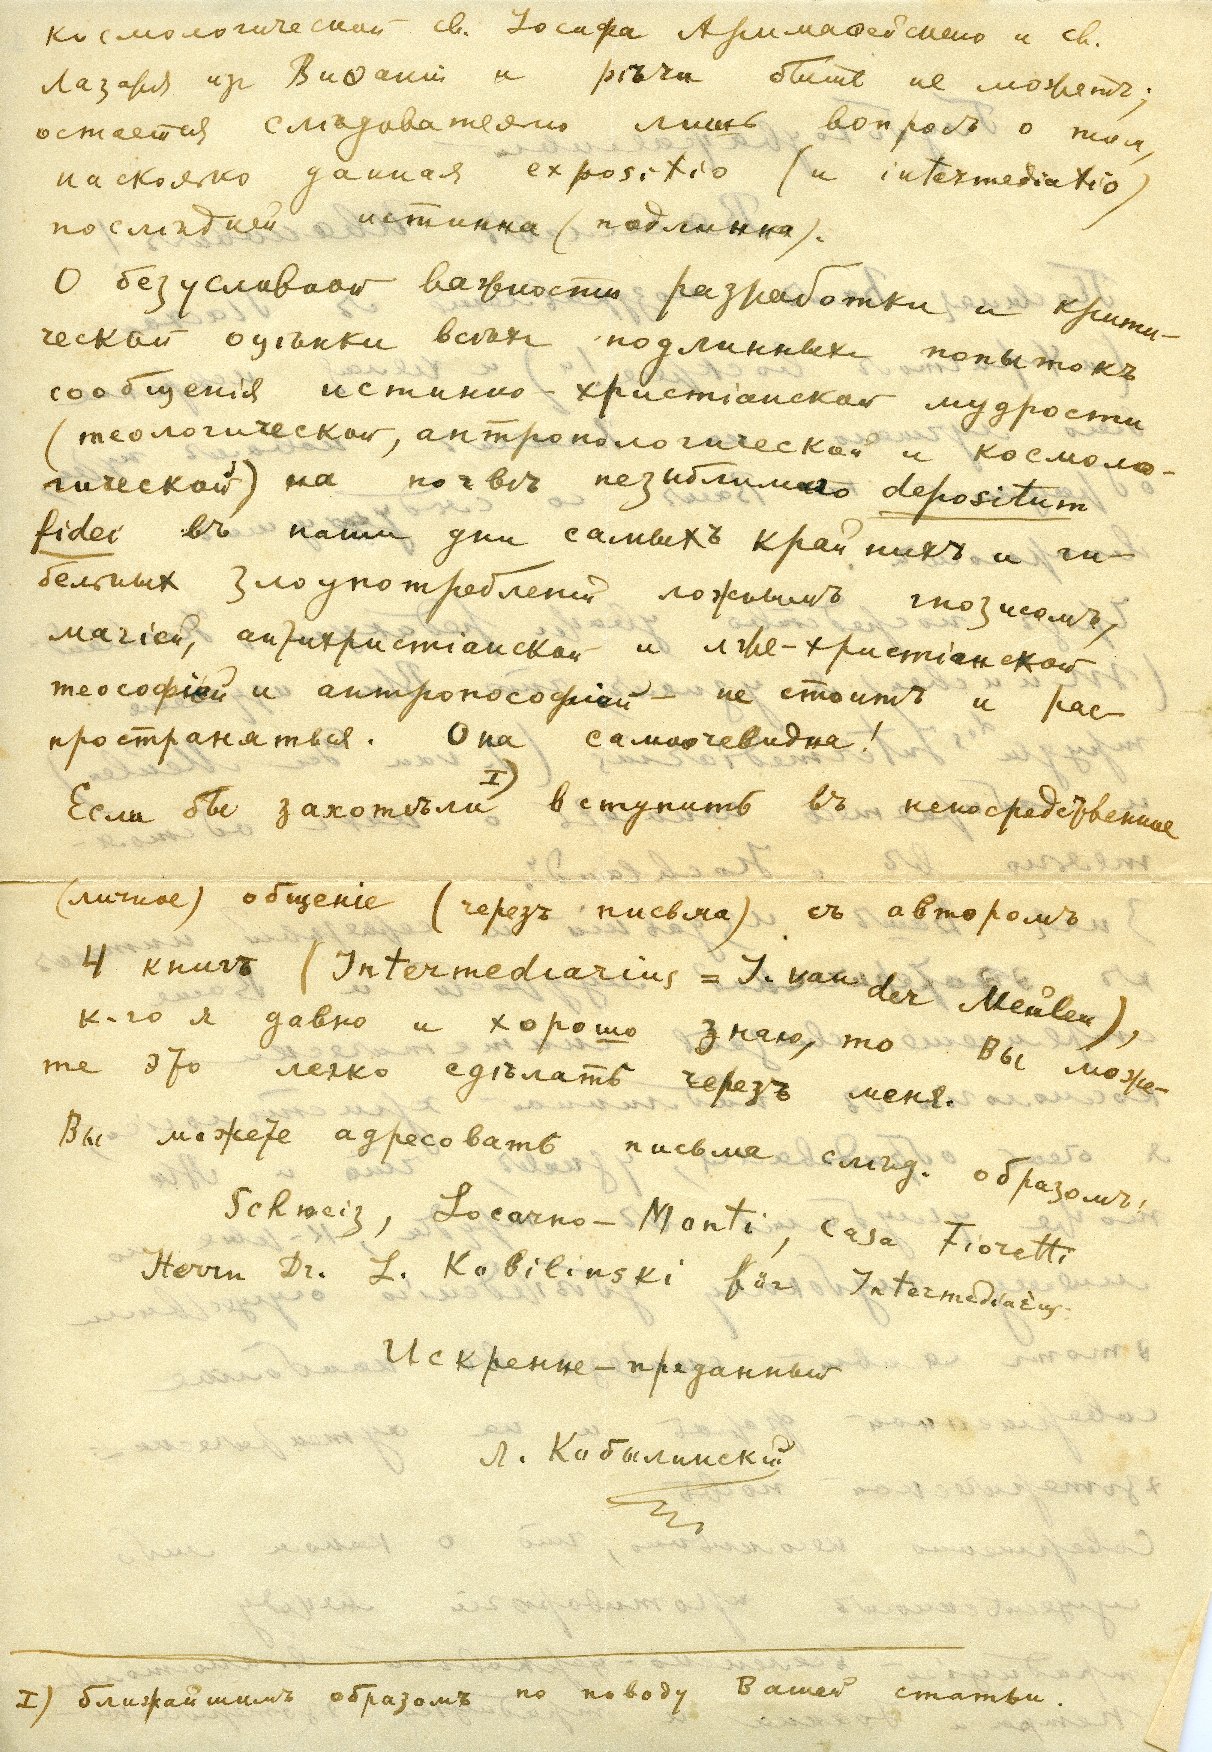 космологической св. Іосифа Аримаѳейскаго и св.
Лазаря из Виѳаніи и рѣчи быть не можетъ;
остается слѣдовательно лишь вопросъ о том,
насколько данная expositio (и intermediatio)
послѣдней истинна (подлинна).
О безусловной важности разработки и крити-
ческой оцѣнки всѣхъ подлинныхъ попытокъ
сообщенія истинно-христіанской мудрости
(теологической, антропологической и космоло-
гической) на почвѣ незыблимаго depositum
fidei въ наши дни самыхъ крайнихъ и ги-
бельных злоупотребленій ложнымъ гнозисомъ,
магіей, антихристіанской и лже-христіанской
теософіей и антропософіей - не стоитъ и рас-
пространяться. Она самоочевидна!
Если бы захотѣли I) вступить въ непосредственное
(личное) общеніе (черезъ письма) съ авторомъ
4 книгъ (Intermediarius = J. van der Meulen),
к-го я давно и хорошо знаю, то Вы може-
те это легко сдѣлать черезъ меня.
Вы можете адресовать письма слѣд. образомъ:
Schweiz, Locarno-Monti, Casa Fioretti
Herrn Dr. L. Kobilinski für Intermediarius.
Искренне-преданный
Л. Кобылинскій
I) ближайшимъ образомъ по поводу Вашей статьи.